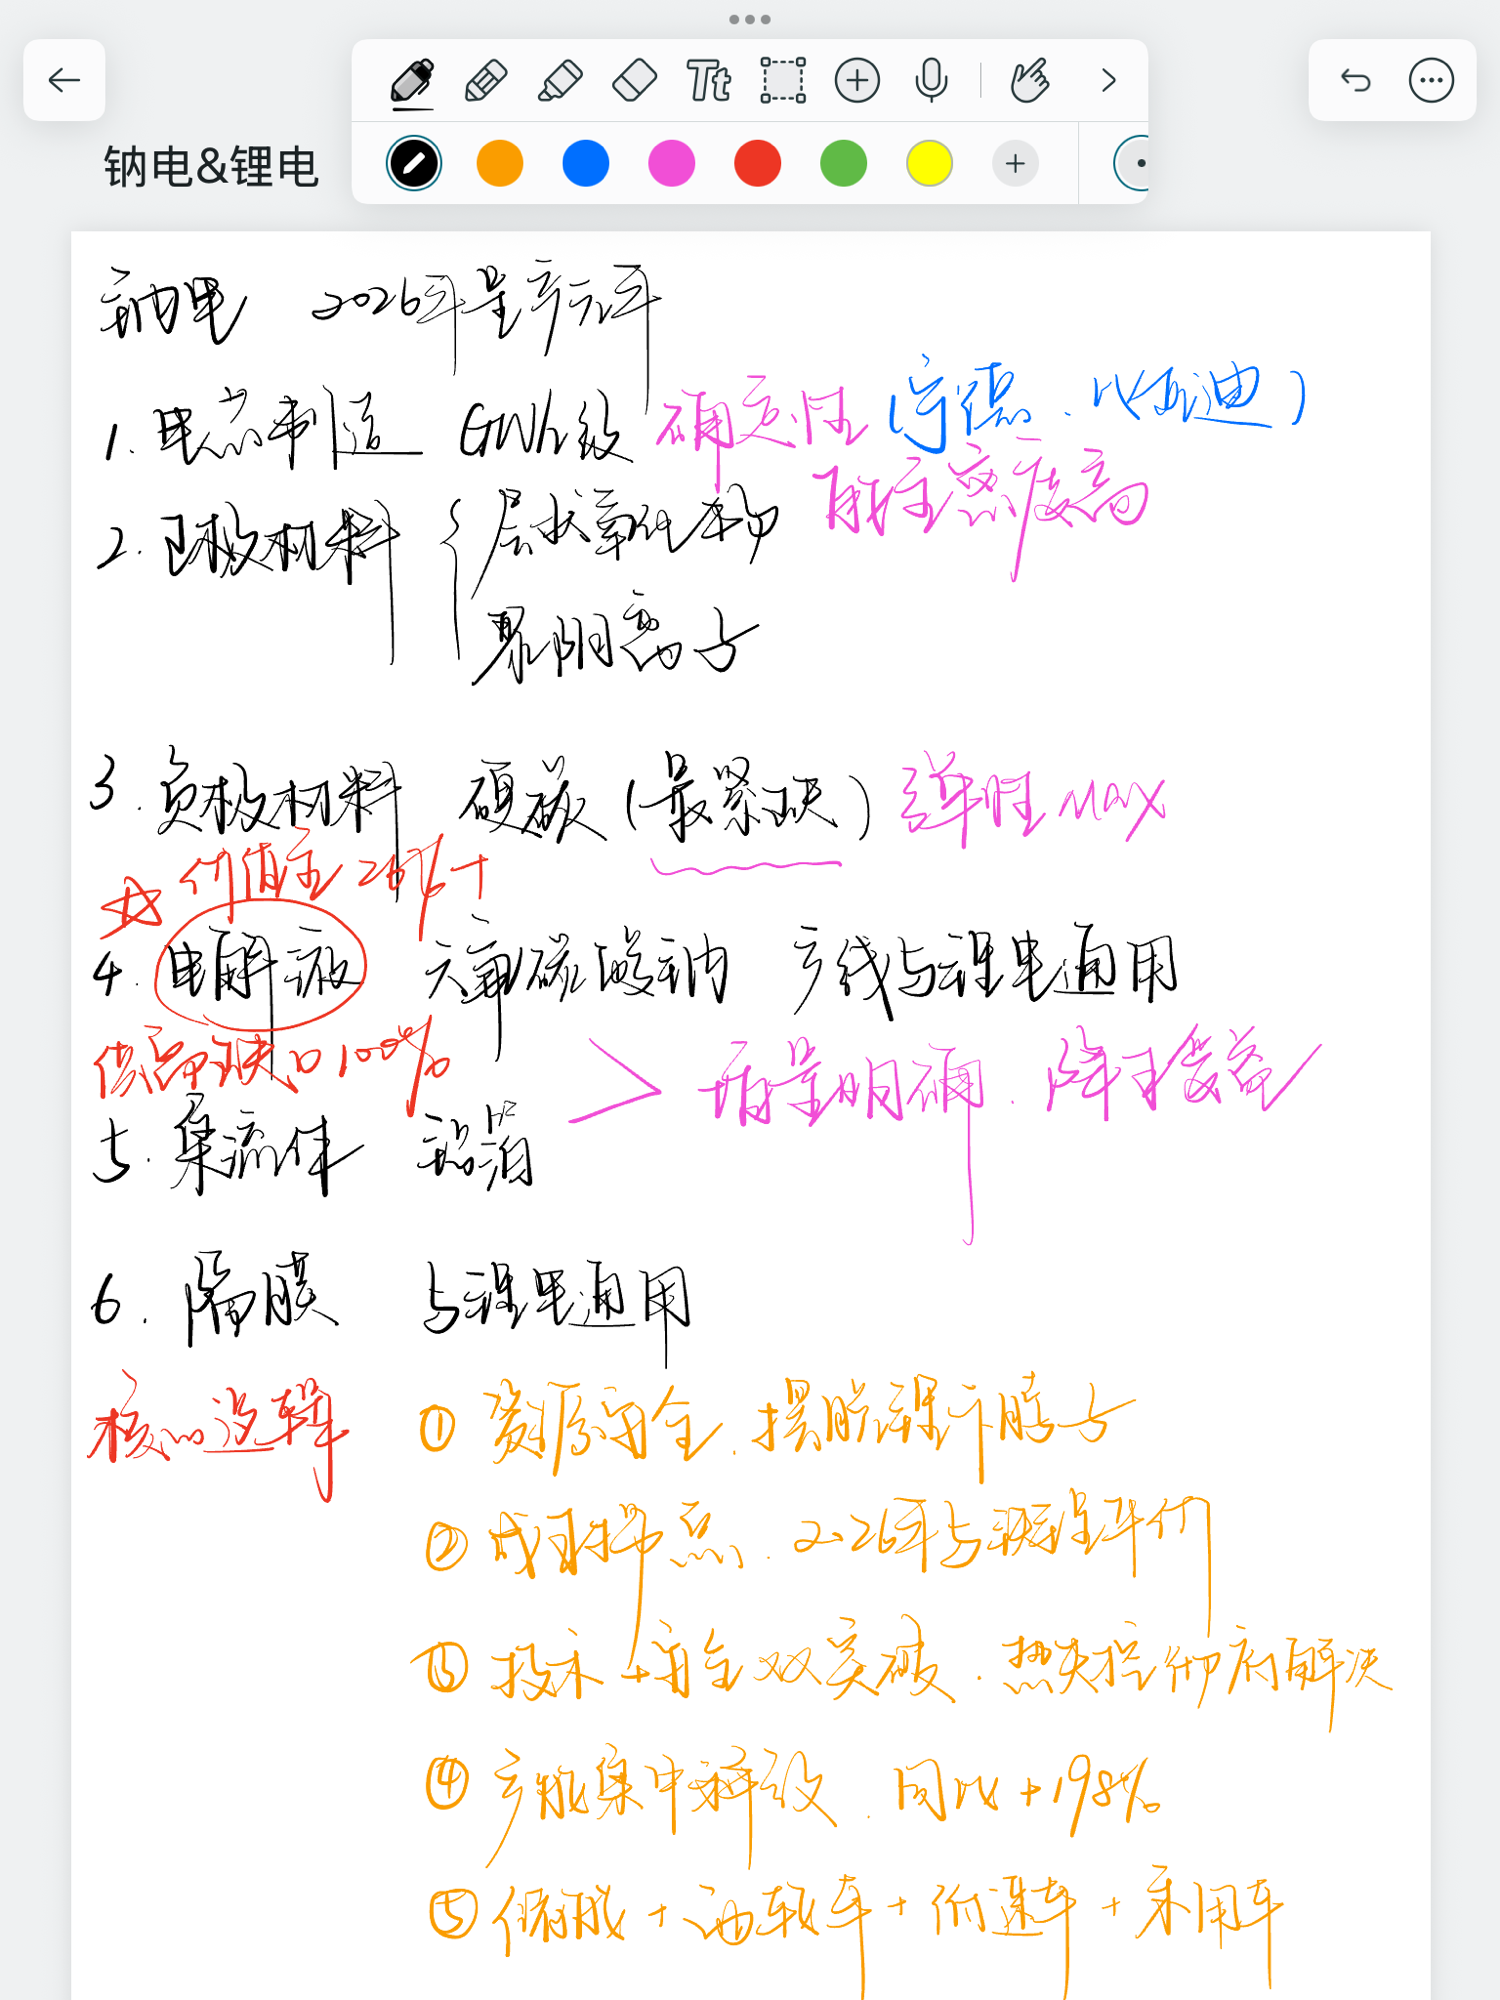 Tt
钠电&锂电
钠电 2026年量产元年
1. 电芯制造 GWh级 确定性 (宁德、比亚迪)
2. 正极材料 { 层状氧化物 能量密度高
聚阴离子
3. 负极材料 硬碳 (最紧缺) 弹性MAX
☆ 价值量 26%+
4. 电解液 六氟碳酸钠 产线与锂电通用
供需缺口100%
> 增量明确、降本受益
5. 集流体 铝箔
6. 隔膜 与锂电通用
核心逻辑 ① 资源安全、摆脱锂卡脖子
② 成本拐点、2026年与铁锂平价
③ 技术+安全双突破、热失控彻底解决
④ 产能集中释放、同比+198%
⑤ 储能+两轮车+低速车+乘用车